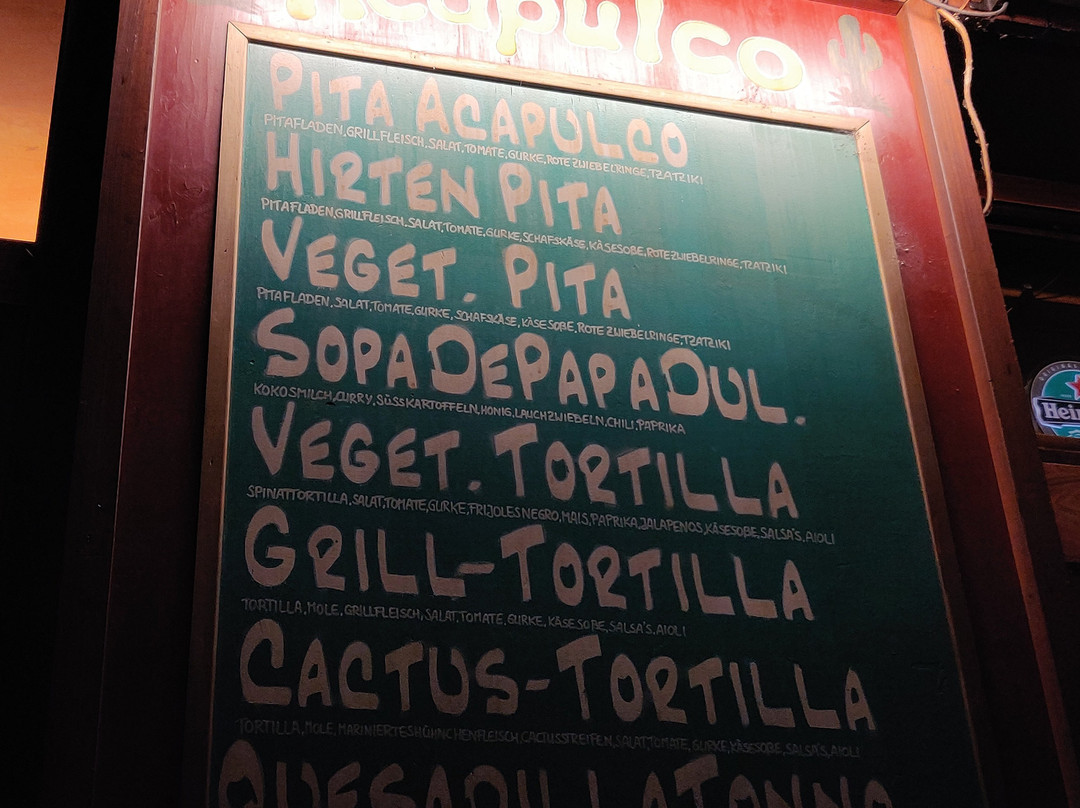 Acapulco
PITA ACAPULCO
PITAFLADEN,GRILLFLEISCH,SALAT,TOMATE,GURKE,ROTE ZWIEBELRINGE,TZATZIKI
HIRTEN PITA
PITAFLADEN,GRILLFLEISCH,SALAT,TOMATE,GURKE,SCHAFSKÄSE,KÄSESOßE,ROTE ZWIEBELRINGE,TZATZIKI
VEGET. PITA
PITAFLADEN,SALAT,TOMATE,GURKE,SCHAFSKÄSE,KÄSESOßE,ROTE ZWIEBELRINGE,TZATZIKI
SOPA DE PAPA DUL.
KOKOSMILCH,CURRY,SÜSSKARTOFFELN,HONIG,LAUCHZWIEBELN,CHILI,PAPRIKA
VEGET. TORTILLA
SPINATTORTILLA,SALAT,TOMATE,GURKE,FRIJOLES NEGRO,MAIS,PAPRIKA,JALAPENOS,KÄSESOßE,SALSA'S,AIOLI
GRILL-TORTILLA
TORTILLA,MOLE,GRILLFLEISCH,SALAT,TOMATE,GURKE,KÄSESOßE,SALSA'S,AIOLI
CACTUS-TORTILLA
TORTILLA,MOLE,MARINIERTES HÜHNCHENFLEISCH,CACTUSSTREIFEN,SALAT,TOMATE,GURKE,KÄSESOßE,SALSA'S,AIOLI
QUESADILLA TONNO